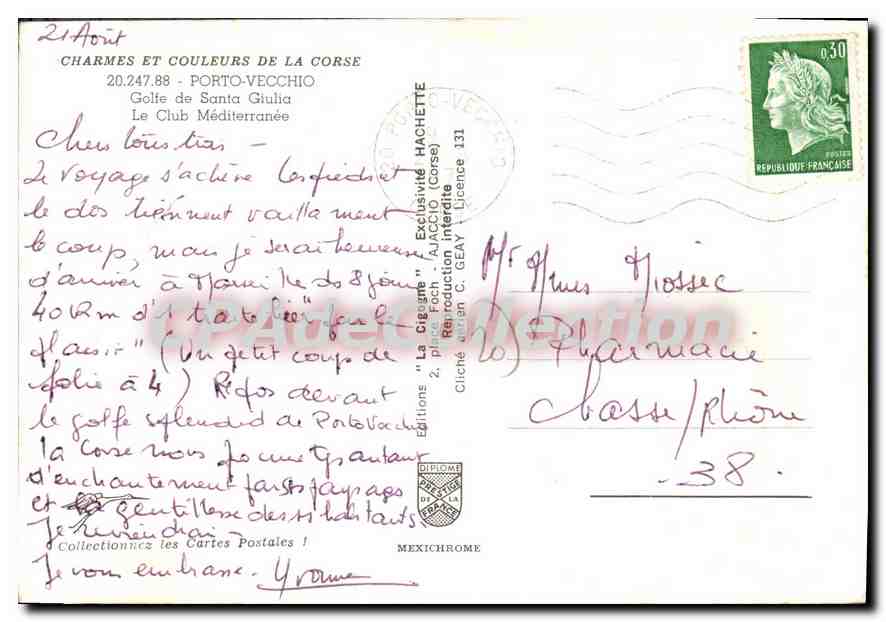 21 Août
CHARMES ET COULEURS DE LA CORSE
20.247.88 - PORTO-VECCHIO
Golfe de Santa Giulia
Le Club Méditerranée
Chers tous trois -
Le voyage s'achève les pieds et
le dos tiennent vaillament
le coup, mais je serai heureuse
d'arriver à Marseille ds 8 jours
40 km d'1 traite hier "pour le
plaisir" (Un petit coup de
folie à 4) Repos devant
le golfe splendide de Porto Vecchio
la Corse nous
d'enchantement par ses paysages
et gentillesse de ses habitants
Je reviendrai -
Collectionnez les Cartes Postales !
Je vous embrasse - Yvonne
Editions "La Cigogne" - Exclusivité HACHETTE
2, place Foch - AJACCIO (Corse)
Reproduction interdite
Cliché aérien C. GEAY - Licence 131
DIPLOME
PRESTIGE
DE LA
FRANCE
MEXICHROME
20 PORTO-VECCHIO
0,30
POSTES
REPUBLIQUE FRANÇAISE
Mr Mmes Miossec
Pharmacie
Chasse/Rhône
- 38 -
CPAdeCollection